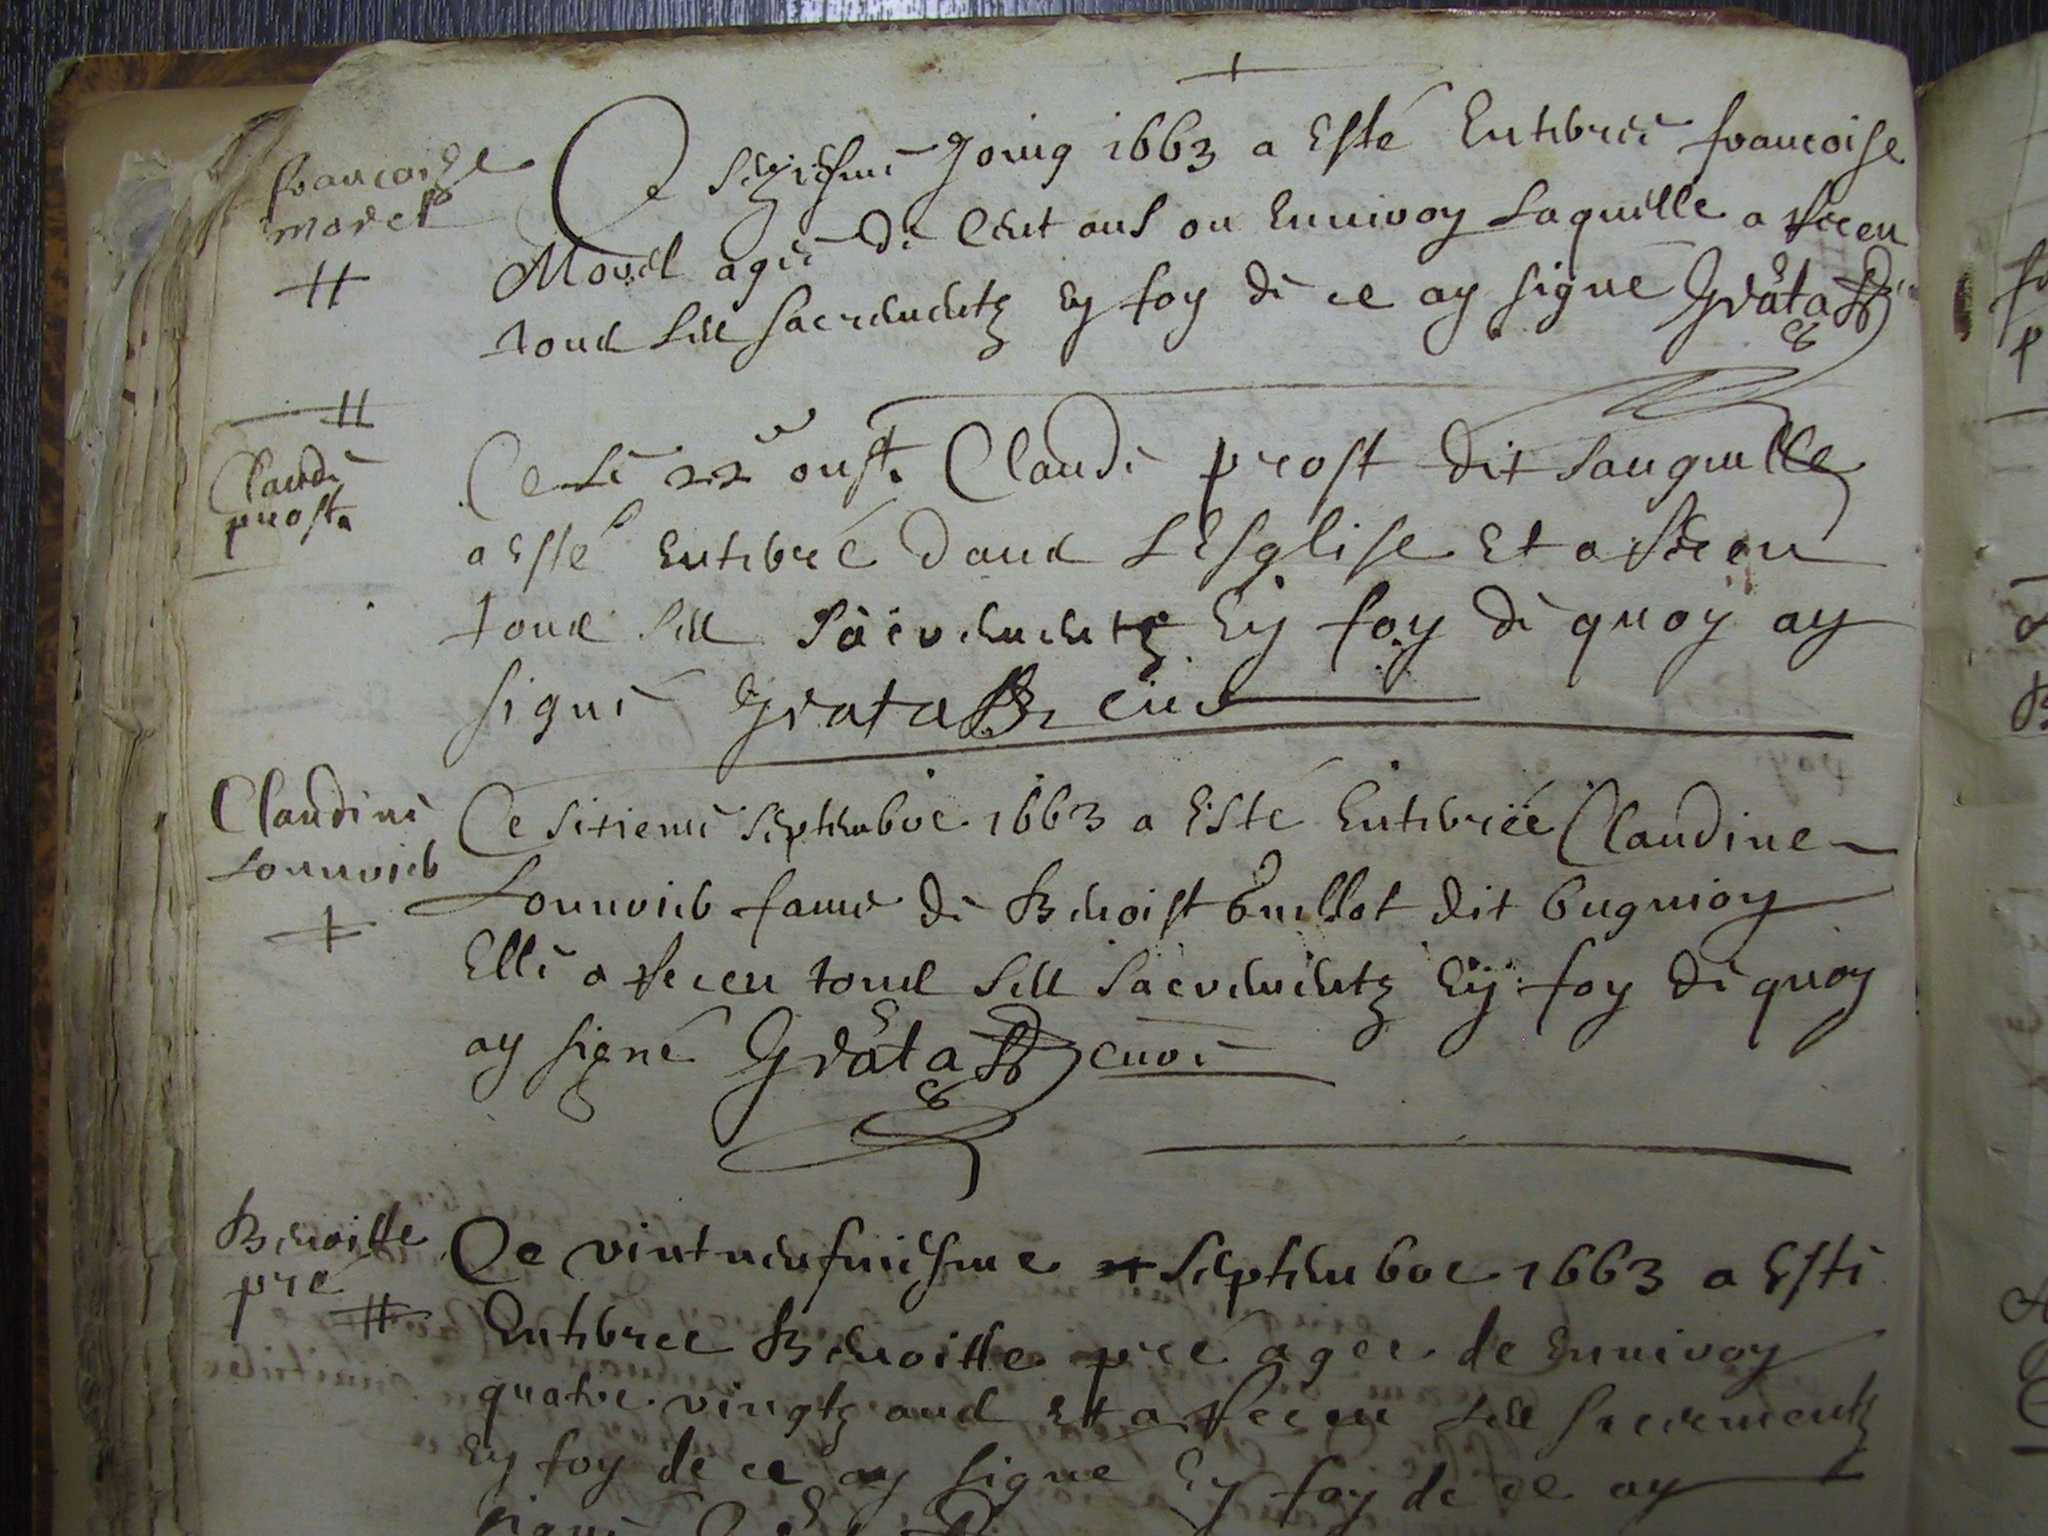 francoise
morel
Ce seziesme Joing 1663 a Esté Enterrée francoise
Morel agée de Cent ans ou Enuiron Laquelle a Receu
tous Les sacrements En foy de ce ay signé Grata
Claude
prost
Ce Le 22e oust Claude prost dit Sanguille
a Esté Enterré dans L'Esglise Et a Receu
tous Les Sacrements En foy de quoy ay
signé Grata curé
Claudine
Louurier
Ce sixieme septembre 1663 a Esté Enterrée Claudine
Louurier fame de Benoist Guillot dit bugnion
Elle a Receu tous Les Sacrements En foy de quoy
ay signé Grata curé
Benoitte
pré
Ce vintneufuiesme septembre 1663 a Esté
Enterree Benoitte pré agee de Enuiron
quatre vingtz ans Et a Receu Les sacrements
En foy de ce ay signe En foy de ce ay
signé